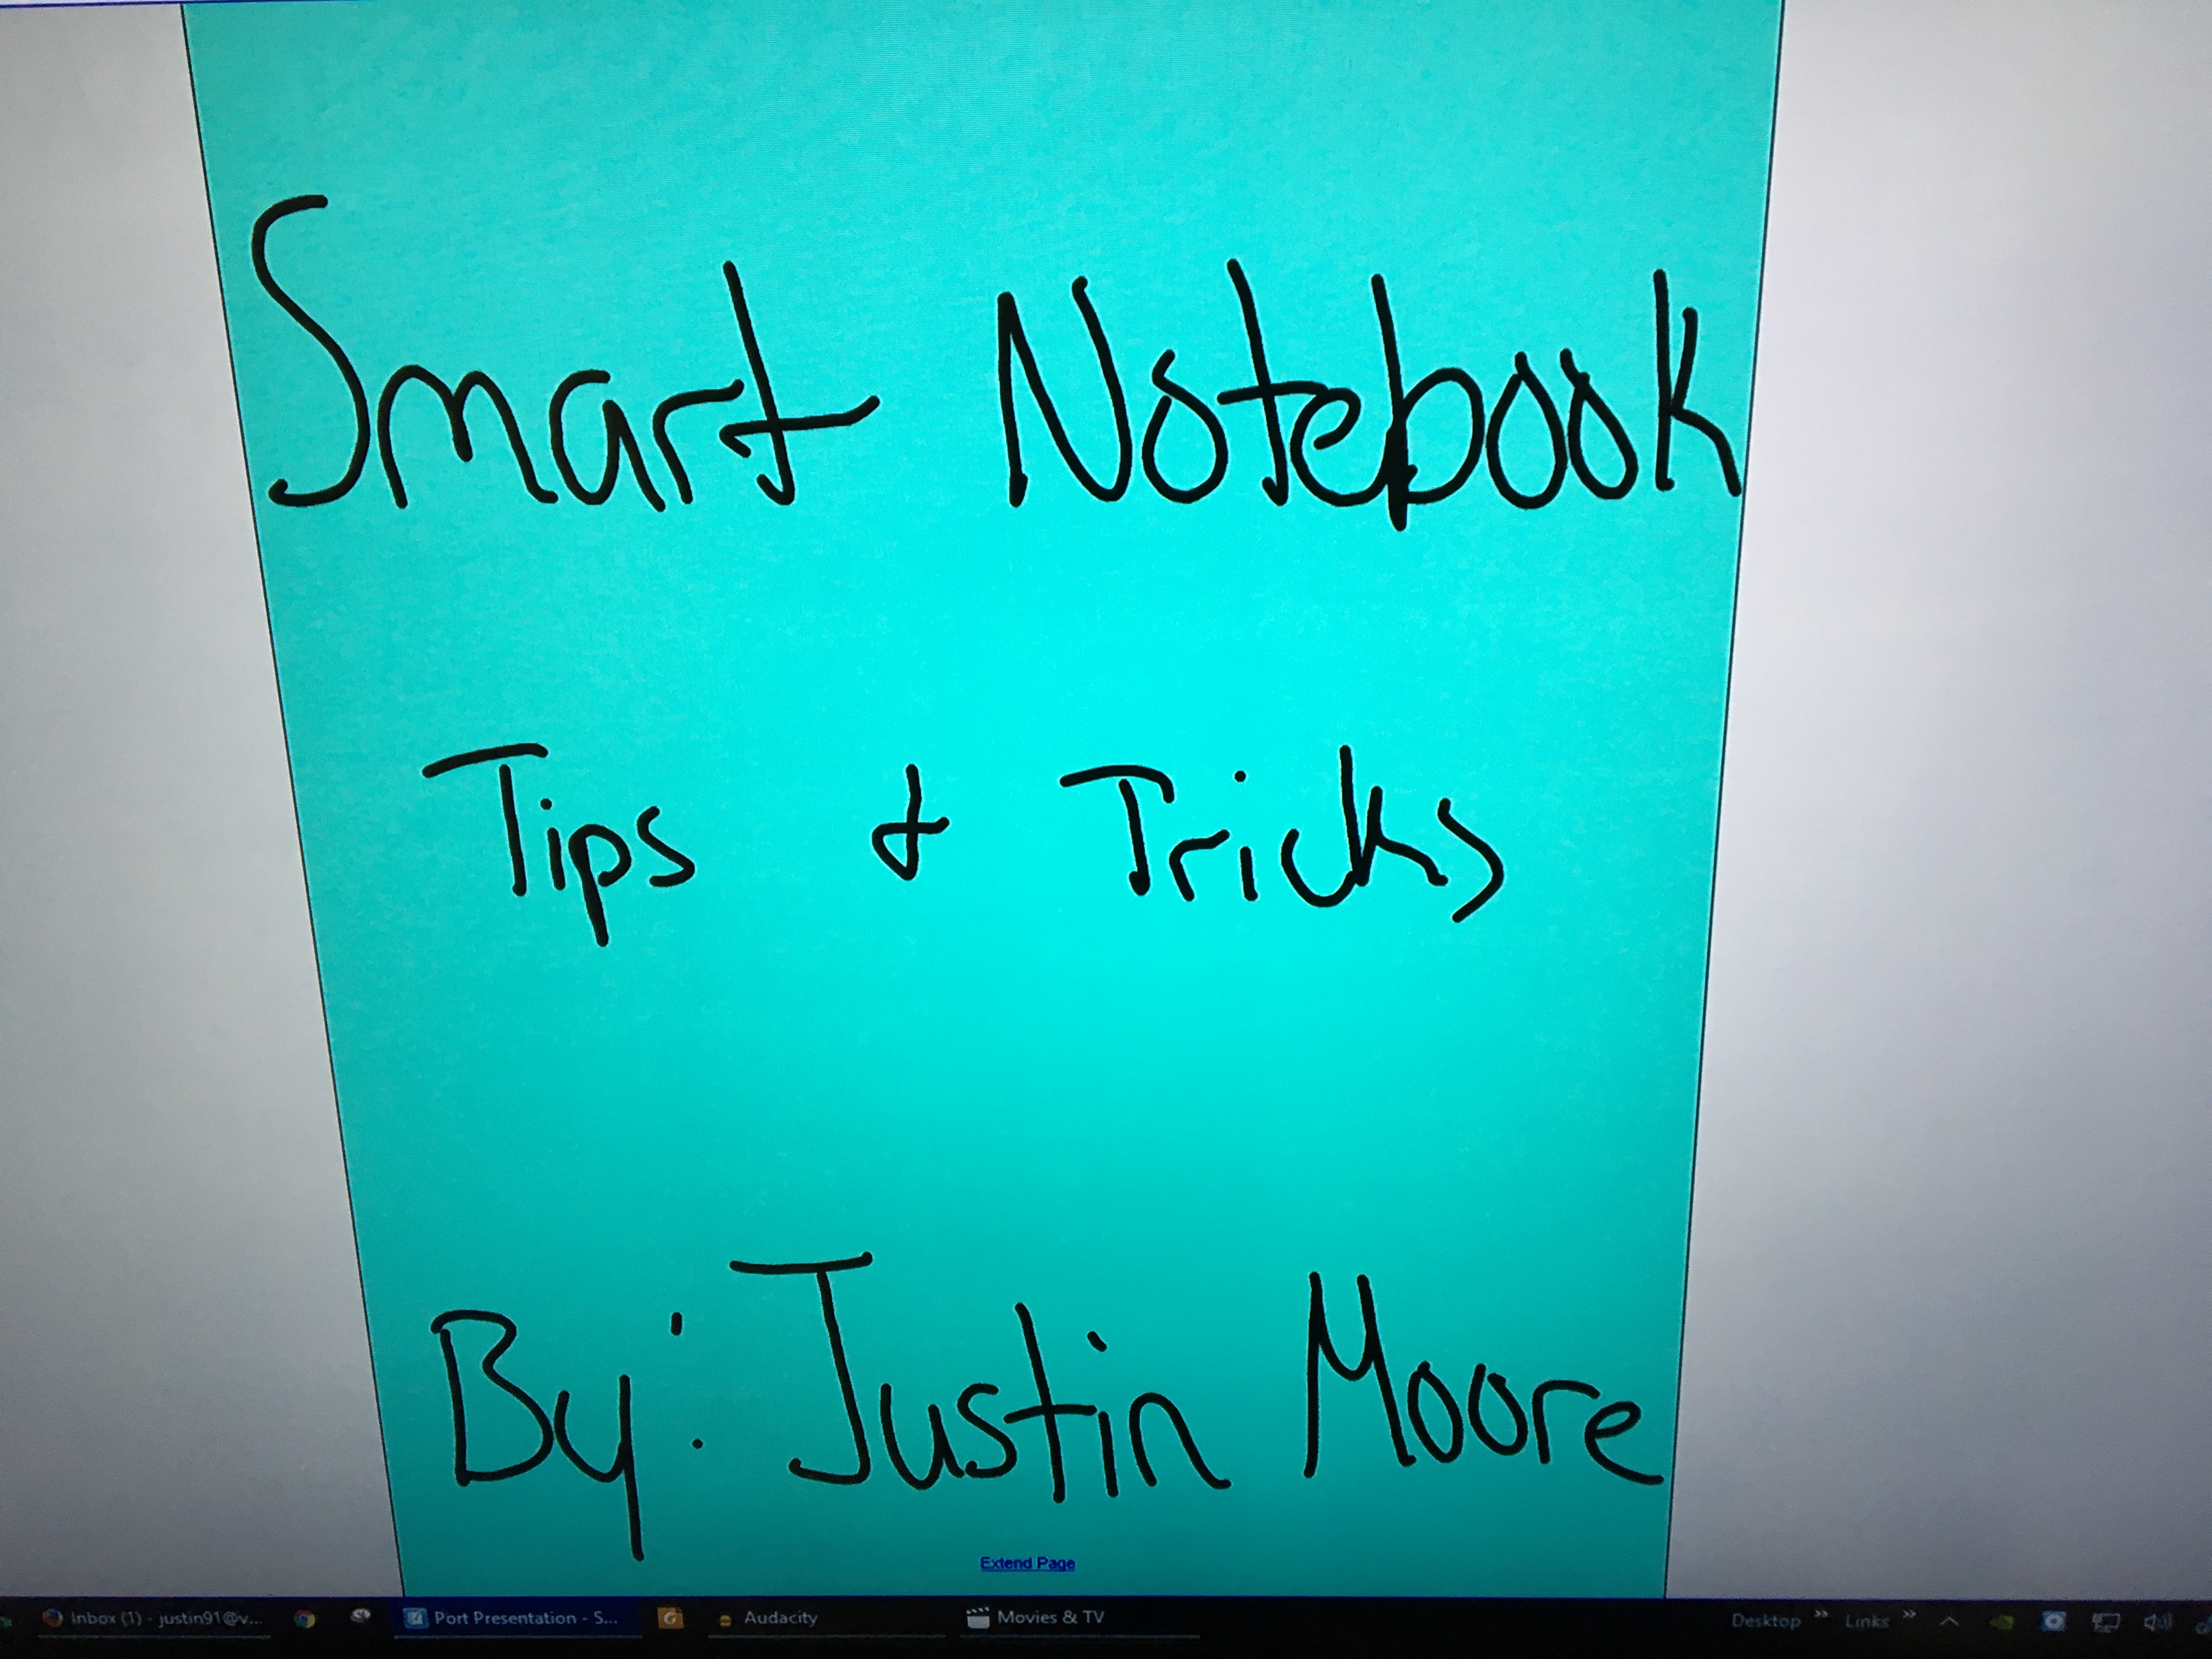 Smart Notebook
Tips & Tricks
By: Justin Moore
Extend Page
Inbox (1) - justin91@v... Port Presentation - S... Audacity Movies & TV Desktop » Links »